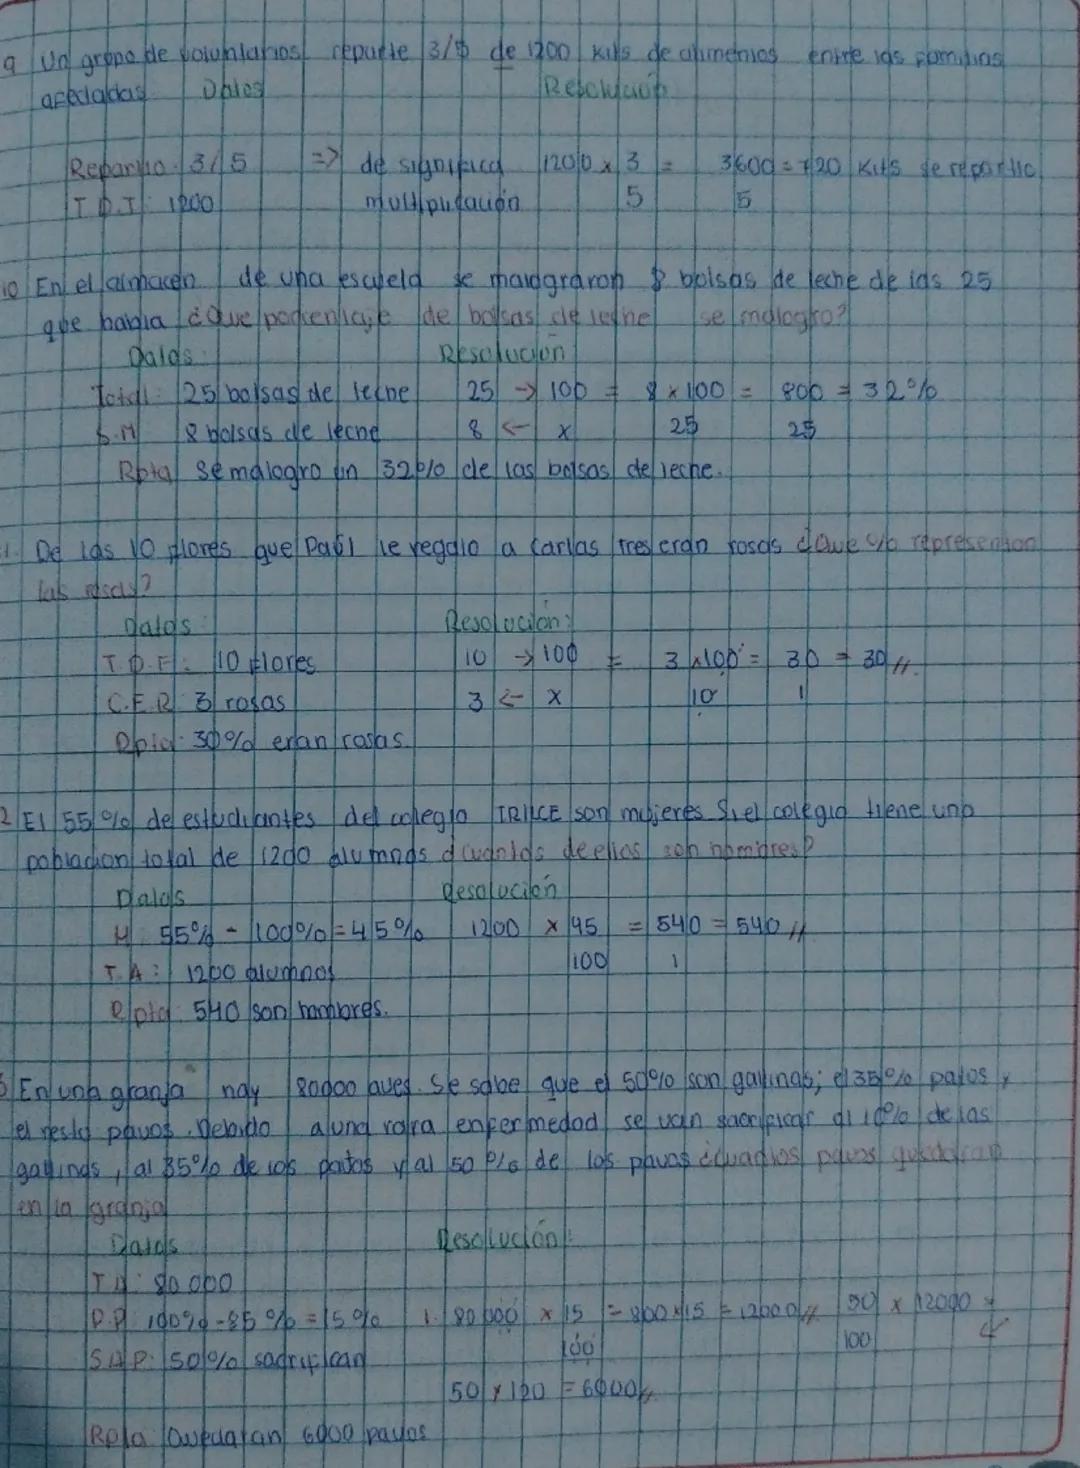 9 Un grupo de voluntarios reparte 3/5 de 1200 Kits de alimentos entre las familias
afectadas Datos Resolución
Reparto: 3/5 => de significa 1200 x 3 = 3600 = 720 Kits se repartio
T.D.I: 1200 multiplicación 5 5
10 En el almacen de una escuela se malograron 8 bolsas de leche de las 25
que habia ¿Que porcentaje de bolsas de leche se malogro?
Datos: Resolución
Total: 25 bolsas de leche 25 → 100 = 8 x 100 = 800 = 32%
S.M 8 bolsas de leche 8 ← x 25 25
Rpta Se malogro un 32% de las bolsas de leche.
1. De las 10 flores que Paúl le regalo a Carlas tres eran rosas ¿Que % representan
las rosas?
Datos: Resolución:
T.D.F: 10 flores 10 → 100 = 3 x 100 = 30 = 30 //.
C.E.R 3 rosas 3 ← x 10 1
Rpta: 30% eran rosas.
2 El 55% de estudiantes del colegio TRILCE son mujeres Si el colegio tiene una
poblacion total de 1200 alumnos ¿cuantos de ellos son hombres?
Datos Resolución
H: 55% - 100% = 45% 1200 x 45 = 540 = 540 //
T.A: 1200 alumnos 100 1
Rpta: 540 son hombres.
3 En una granja hay 80000 aves. Se sabe que el 50% son gallinas; el 35% patos y
el resto pavos. Debido a una rara enfermedad se van sacrificar al 10% de las
gallinas, al 35% de los patos y al 50% de los pavos ¿cuantos pavos quedaran
en la granja
Datos Resolución:
T.A: 80 000
P.P: 100% - 85% = 15% 1. 80 000 x 15 = 800 x 15 = 12000 // 50 x 12000
S.A.P: 50% sacrifican 100 100
50 x 120 = 6000 //
Rpta Quedaran 6000 pavos